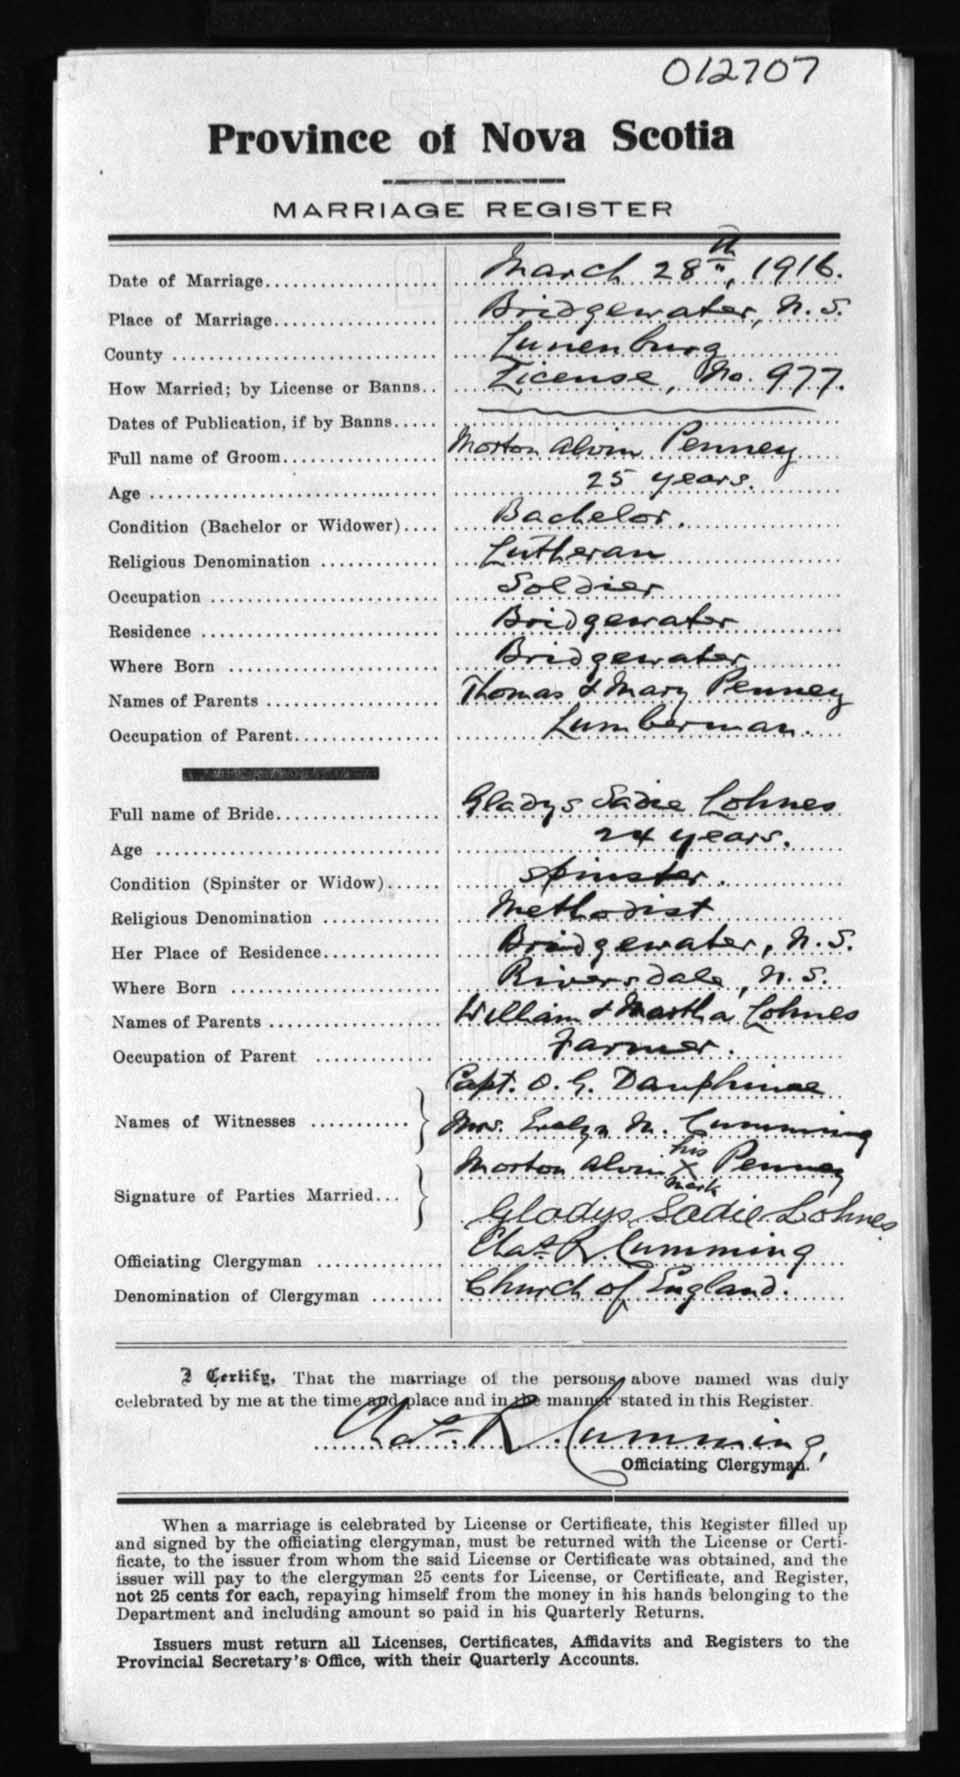 012707
Province of Nova Scotia
MARRIAGE REGISTER
Date of Marriage.................... March 28th, 1916.
Place of Marriage................... Bridgewater, N.S.
County ............................ Lunenburg
How Married; by License or Banns.. License, No. 977.
Dates of Publication, if by Banns.....
Full name of Groom................. Morton Alvin Penney
Age ............................... 25 years.
Condition (Bachelor or Widower).... Bachelor.
Religious Denomination ............. Lutheran
Occupation ......................... Soldier
Residence .......................... Bridgewater
Where Born ........................ Bridgewater
Names of Parents ................... Thomas & Mary Penney
Occupation of Parent................ Lumberman.
Full name of Bride.................. Gladys Sadie Lohnes
Age ............................... 24 years.
Condition (Spinster or Widow)...... Spinster.
Religious Denomination ............. Methodist
Her Place of Residence............. Bridgewater, N.S.
Where Born ........................ Riversdale, N.S.
Names of Parents ................... William & Martha Lohnes
Occupation of Parent ............... Farmer.
Capt. O. G. Dauphinee
Names of Witnesses ........... Mrs. Evelyn M. Cumming
Morton Alvin his X mark Penney
Signature of Parties Married...
Gladys Sadie Lohnes
Officiating Clergyman .............. Chas. R. Cumming
Denomination of Clergyman ........ Church of England.
I Certify, That the marriage of the persons above named was duly
celebrated by me at the time and place and in the manner stated in this Register.
Chas. R. Cumming,
Officiating Clergyman.
When a marriage is celebrated by License or Certificate, this Register filled up
and signed by the officiating clergyman, must be returned with the License or Certi-
ficate, to the issuer from whom the said License or Certificate was obtained, and the
issuer will pay to the clergyman 25 cents for License, or Certificate, and Register,
not 25 cents for each, repaying himself from the money in his hands belonging to the
Department and including amount so paid in his Quarterly Returns.
Issuers must return all Licenses, Certificates, Affidavits and Registers to the
Provincial Secretary's Office, with their Quarterly Accounts.